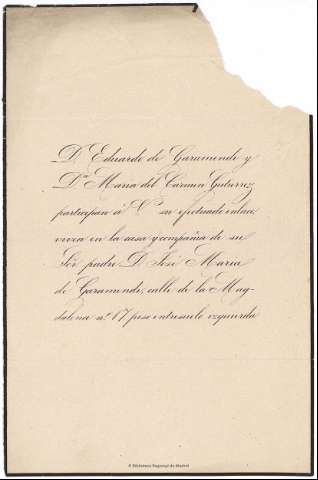 D. Eduardo de Garamendi y
D.ª Maria del Carmen Gutierrez
participan á V. su efectuado enlace,
viven en la casa y compañia de su
Sor. padre D. José Maria
de Garamendi, calle de la Mag-
dalena n.º 17 piso entresuelo izquierda
© Biblioteca Regional de Madrid